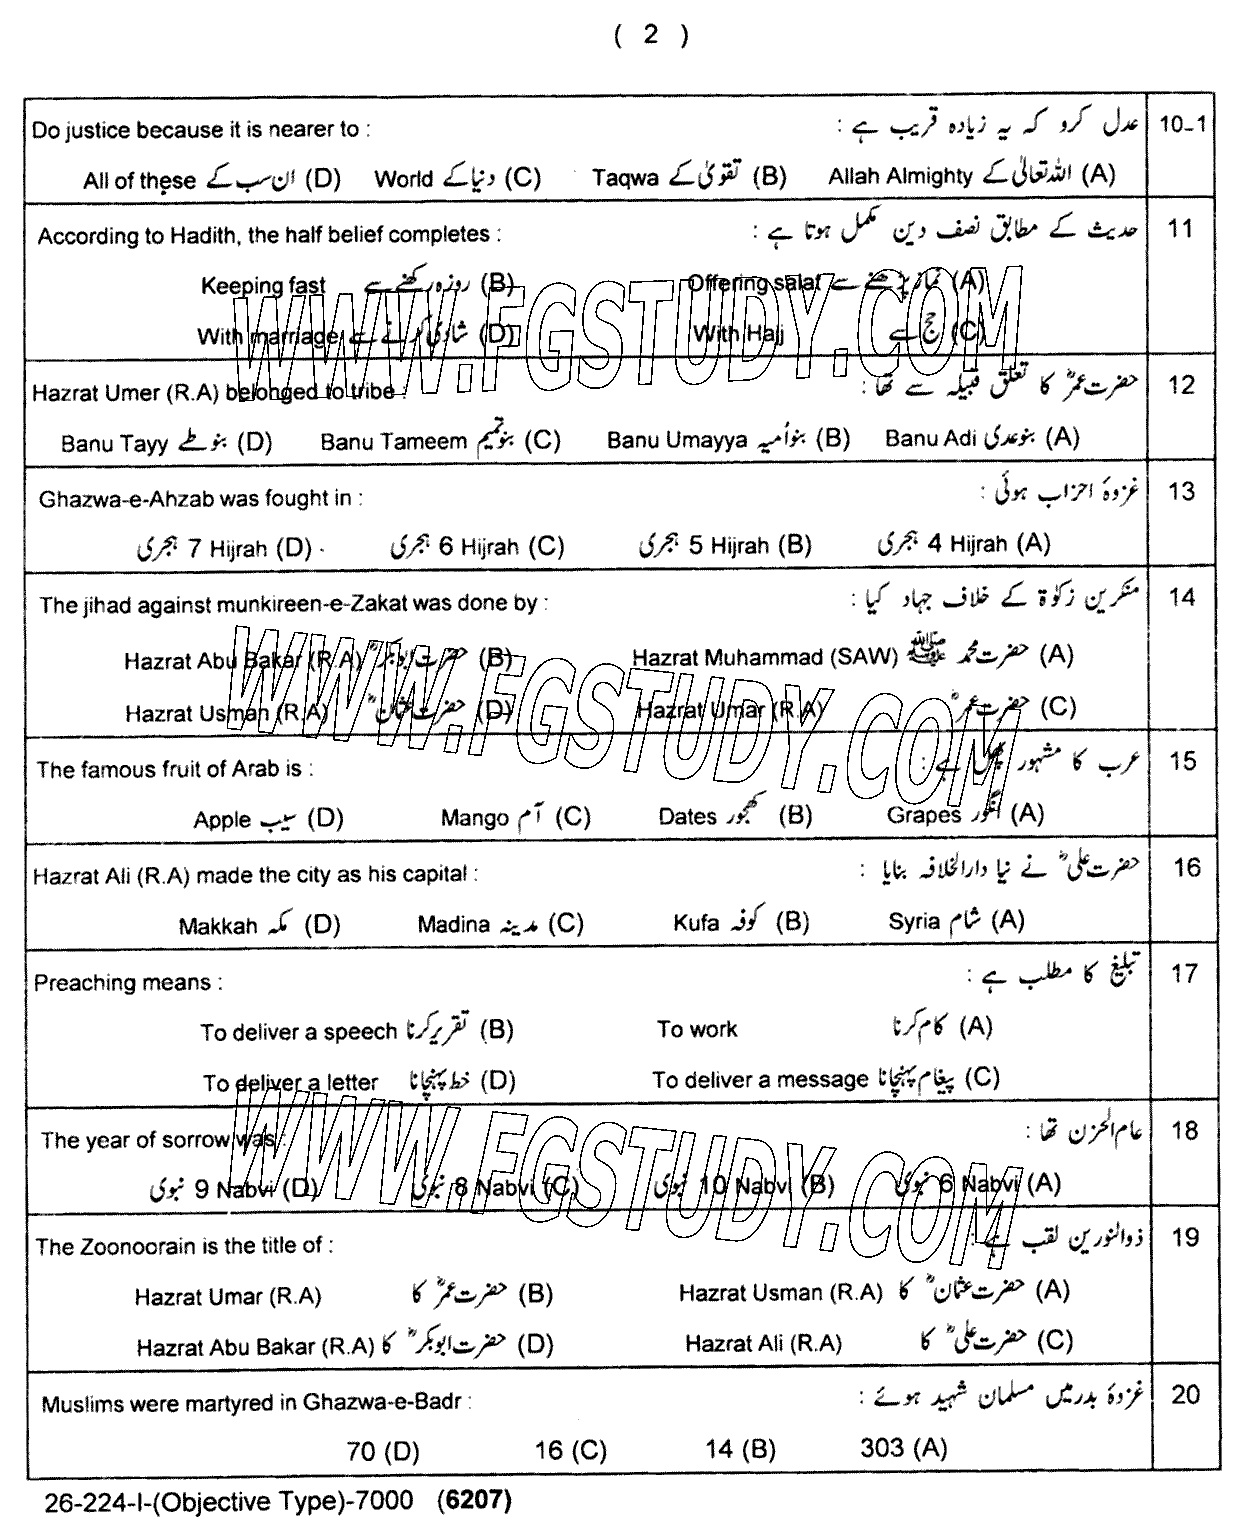 ( 2 )
Do justice because it is nearer to : عدل کرو کہ یہ زیادہ قریب ہے : 10-1
All of these ان سب کے (D) World دنیا کے (C) Taqwa تقویٰ کے (B) Allah Almighty اللہ تعالیٰ کے (A)
According to Hadith, the half belief completes : حدیث کے مطابق نصف دین مکمل ہوتا ہے : 11
Keeping fast روزہ رکھنے سے (B) Offering salat نماز پڑھنے سے (A)
With marriage شادی کرنے سے (D) With Hajj حج سے (C)
WWW.FGSTUDY.COM
Hazrat Umer (R.A) belonged to tribe : حضرت عمرؓ کا تعلق قبیلہ سے تھا : 12
Banu Tayy بنو طے (D) Banu Tameem بنو تمیم (C) Banu Umayya بنو اُمیہ (B) Banu Adi بنو عدی (A)
Ghazwa-e-Ahzab was fought in : غزوۂ احزاب ہوئی : 13
7 Hijrah ہجری (D) 6 Hijrah ہجری (C) 5 Hijrah ہجری (B) 4 Hijrah ہجری (A)
The jihad against munkireen-e-Zakat was done by : منکرین زکوٰۃ کے خلاف جہاد کیا : 14
Hazrat Abu Bakar (R.A) حضرت ابوبکرؓ (B) Hazrat Muhammad (SAW) حضرت محمد ﷺ (A)
Hazrat Usman (R.A) حضرت عثمانؓ (D) Hazrat Umar (R.A) حضرت عمرؓ (C)
WWW.FGSTUDY.COM
The famous fruit of Arab is : عرب کا مشہور پھل ہے : 15
Apple سیب (D) Mango آم (C) Dates کھجور (B) Grapes انگور (A)
Hazrat Ali (R.A) made the city as his capital : حضرت علیؓ نے نیا دارالخلافہ بنایا : 16
Makkah مکہ (D) Madina مدینہ (C) Kufa کوفہ (B) Syria شام (A)
Preaching means : تبلیغ کا مطلب ہے : 17
To deliver a speech تقریر کرنا (B) To work کام کرنا (A)
To deliver a letter خط پہنچانا (D) To deliver a message پیغام پہنچانا (C)
The year of sorrow was : عام الحزن تھا : 18
9 Nabvi نبوی (D) 8 Nabvi نبوی (C) 10 Nabvi نبوی (B) 6 Nabvi نبوی (A)
WWW.FGSTUDY.COM
The Zoonoorain is the title of : ذوالنورین لقب ہے : 19
Hazrat Umar (R.A) حضرت عمرؓ کا (B) Hazrat Usman (R.A) حضرت عثمانؓ کا (A)
Hazrat Abu Bakar (R.A) حضرت ابوبکرؓ کا (D) Hazrat Ali (R.A) حضرت علیؓ کا (C)
Muslims were martyred in Ghazwa-e-Badr : غزوۂ بدر میں مسلمان شہید ہوئے : 20
70 (D) 16 (C) 14 (B) 303 (A)
26-224-I-(Objective Type)-7000 (6207)